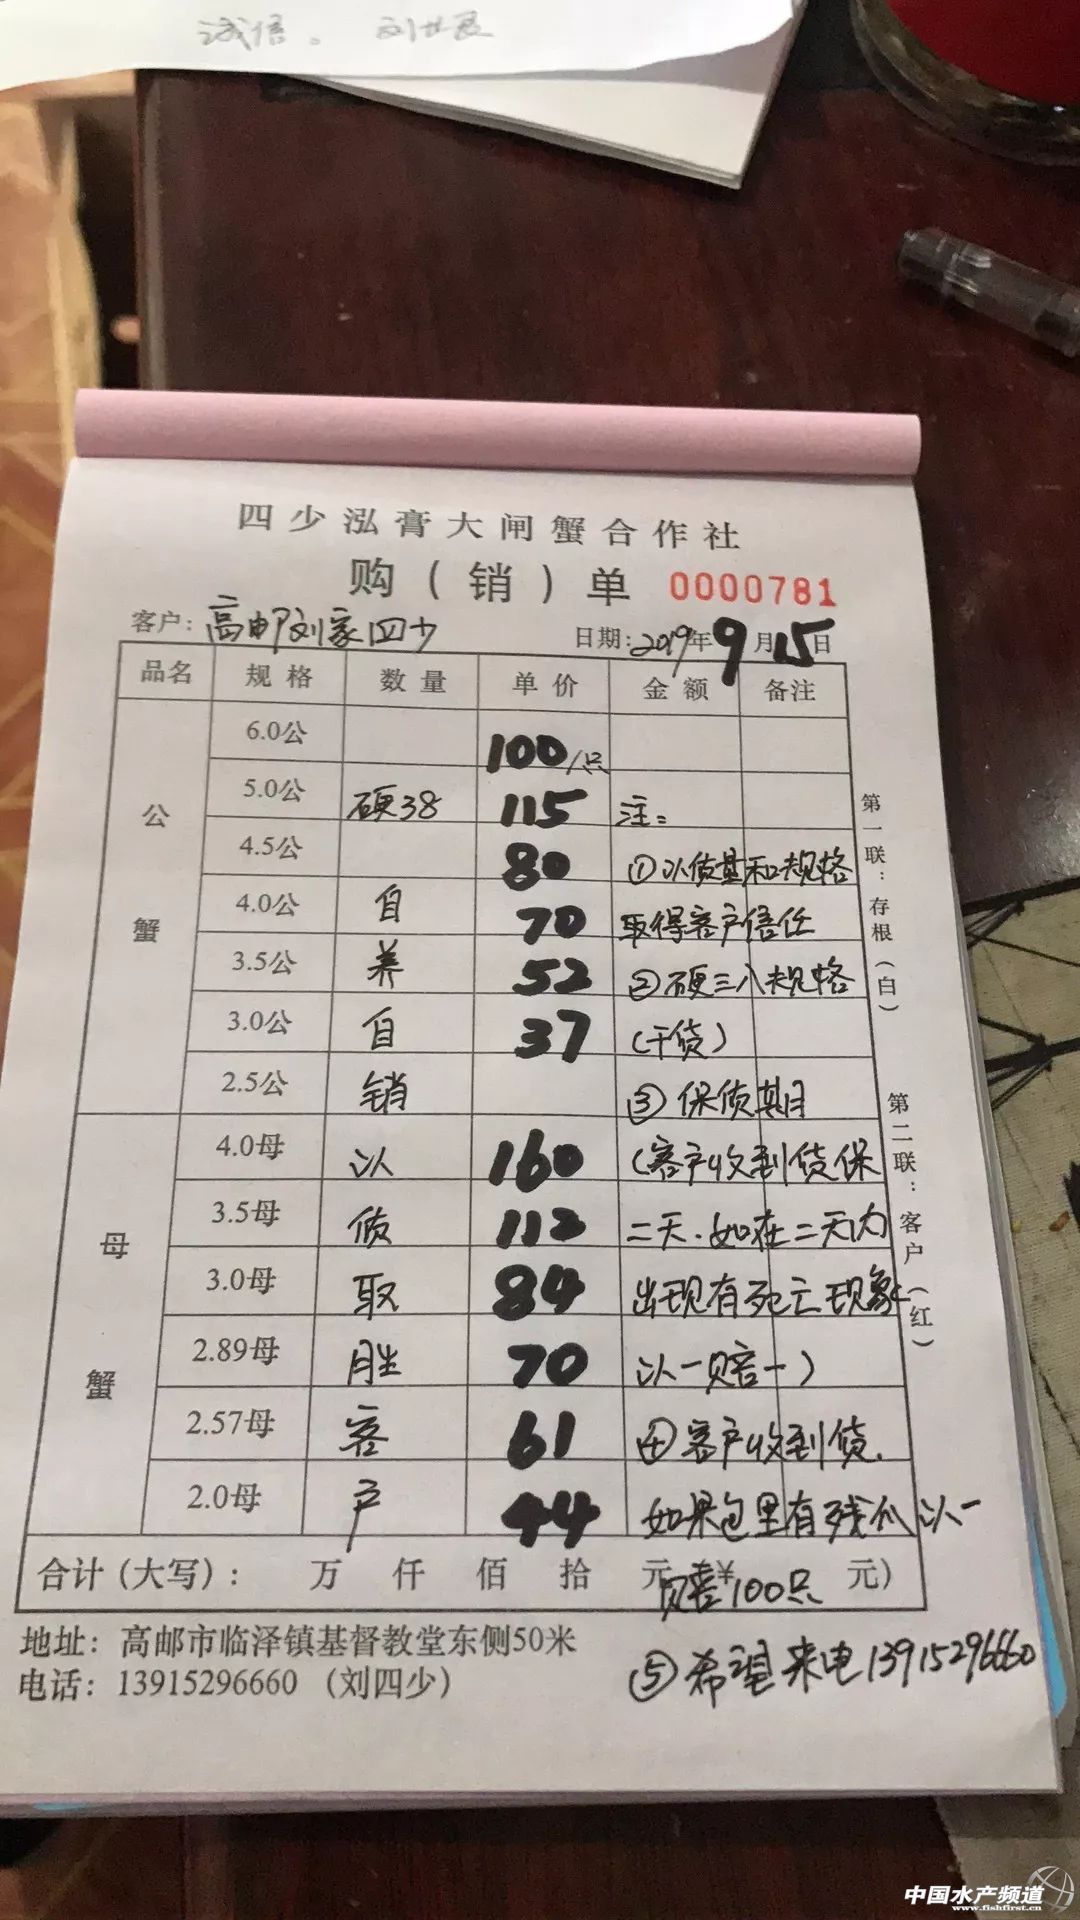 诚信。 刘世良
四少泓膏大闸蟹合作社
购（销）单 0000781
客户：高邮刘家四少 日期：2019年9月15日
品名 规格 数量 单价 金额 备注
公蟹
6.0公 100/只
5.0公 硬38 115 注：
4.5公 80 ①以质量和规格
4.0公 自 70 取得客户信任
3.5公 养 52 ②硬三八规格
3.0公 自 37 （干货）
2.5公 销 ③保质期
母蟹
4.0母 以 160 （客户收到货保
3.5母 质 112 二天.如在二天内
3.0母 取 84 出现有死亡现象
2.89母 胜 70 以一赔一）
2.57母 客 61 ④客户收到货.
2.0母 户 44 如果包里有残爪以一
合计（大写）： 万 仟 佰 拾 元 ¥ 元）
赔100只
地址：高邮市临泽镇基督教堂东侧50米
电话：13915296660（刘四少）
⑤希望来电13915296660
第一联：存根（白）
第二联：客户（红）
中国水产频道
www.fishfirst.cn